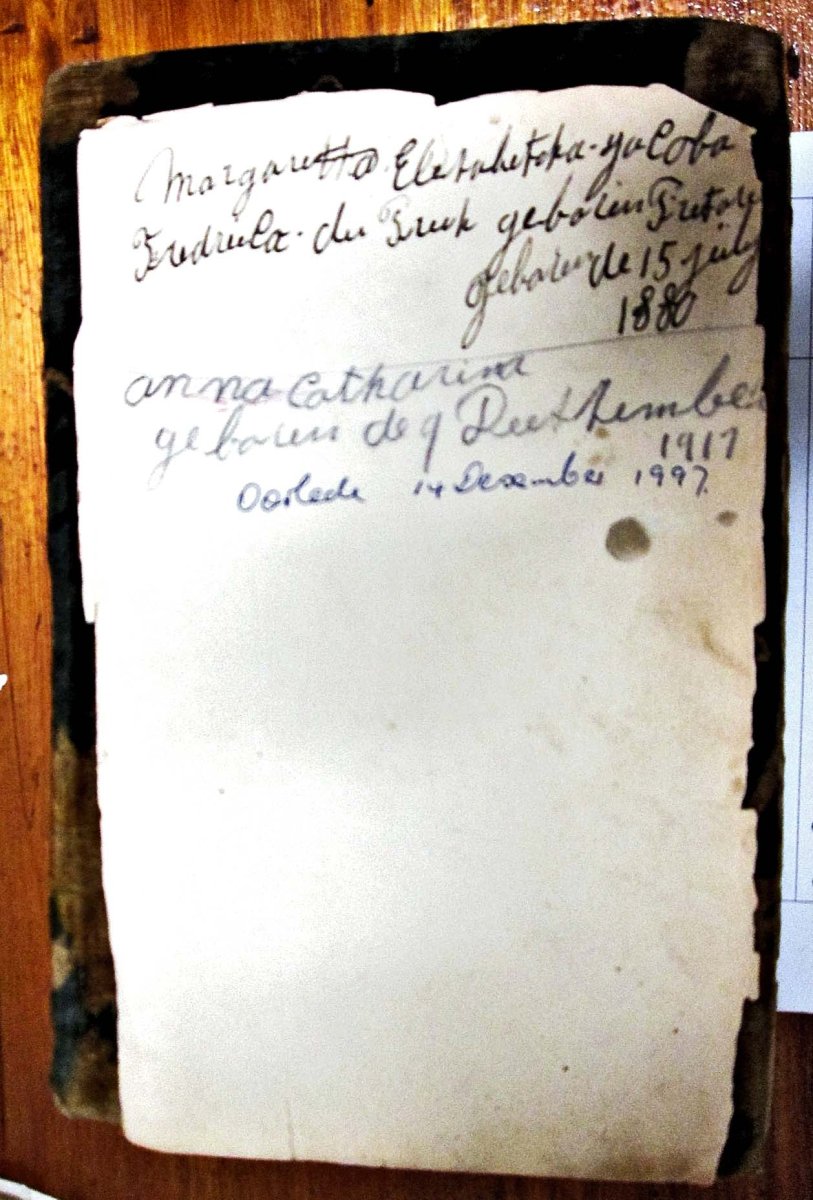 Margaretta Elizabetha-yacoba
Fredrieka. du Preek geboren Pretore
geboren de 15 july
1880
anna Catharina
geboren de 9 Destember
1917
Oorlede 14 Desember 1997.